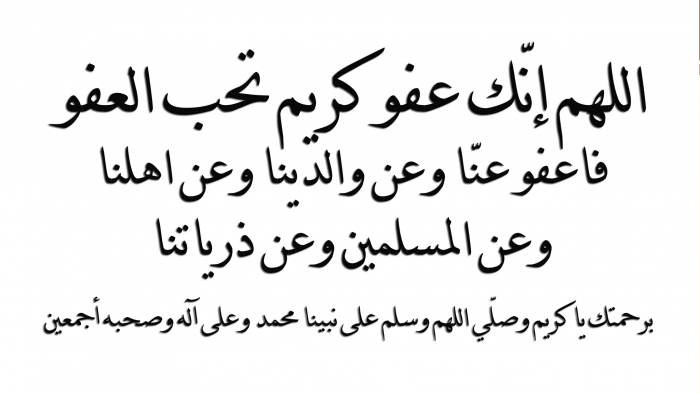 اللهم إنّك عفو كريم تحب العفو
فاعفو عنّا وعن والدينا وعن اهلنا
وعن المسلمين وعن ذرياتنا
برحمتك يا كريم وصلّي اللهم وسلم على نبينا محمد وعلى آله وصحبه أجمعين